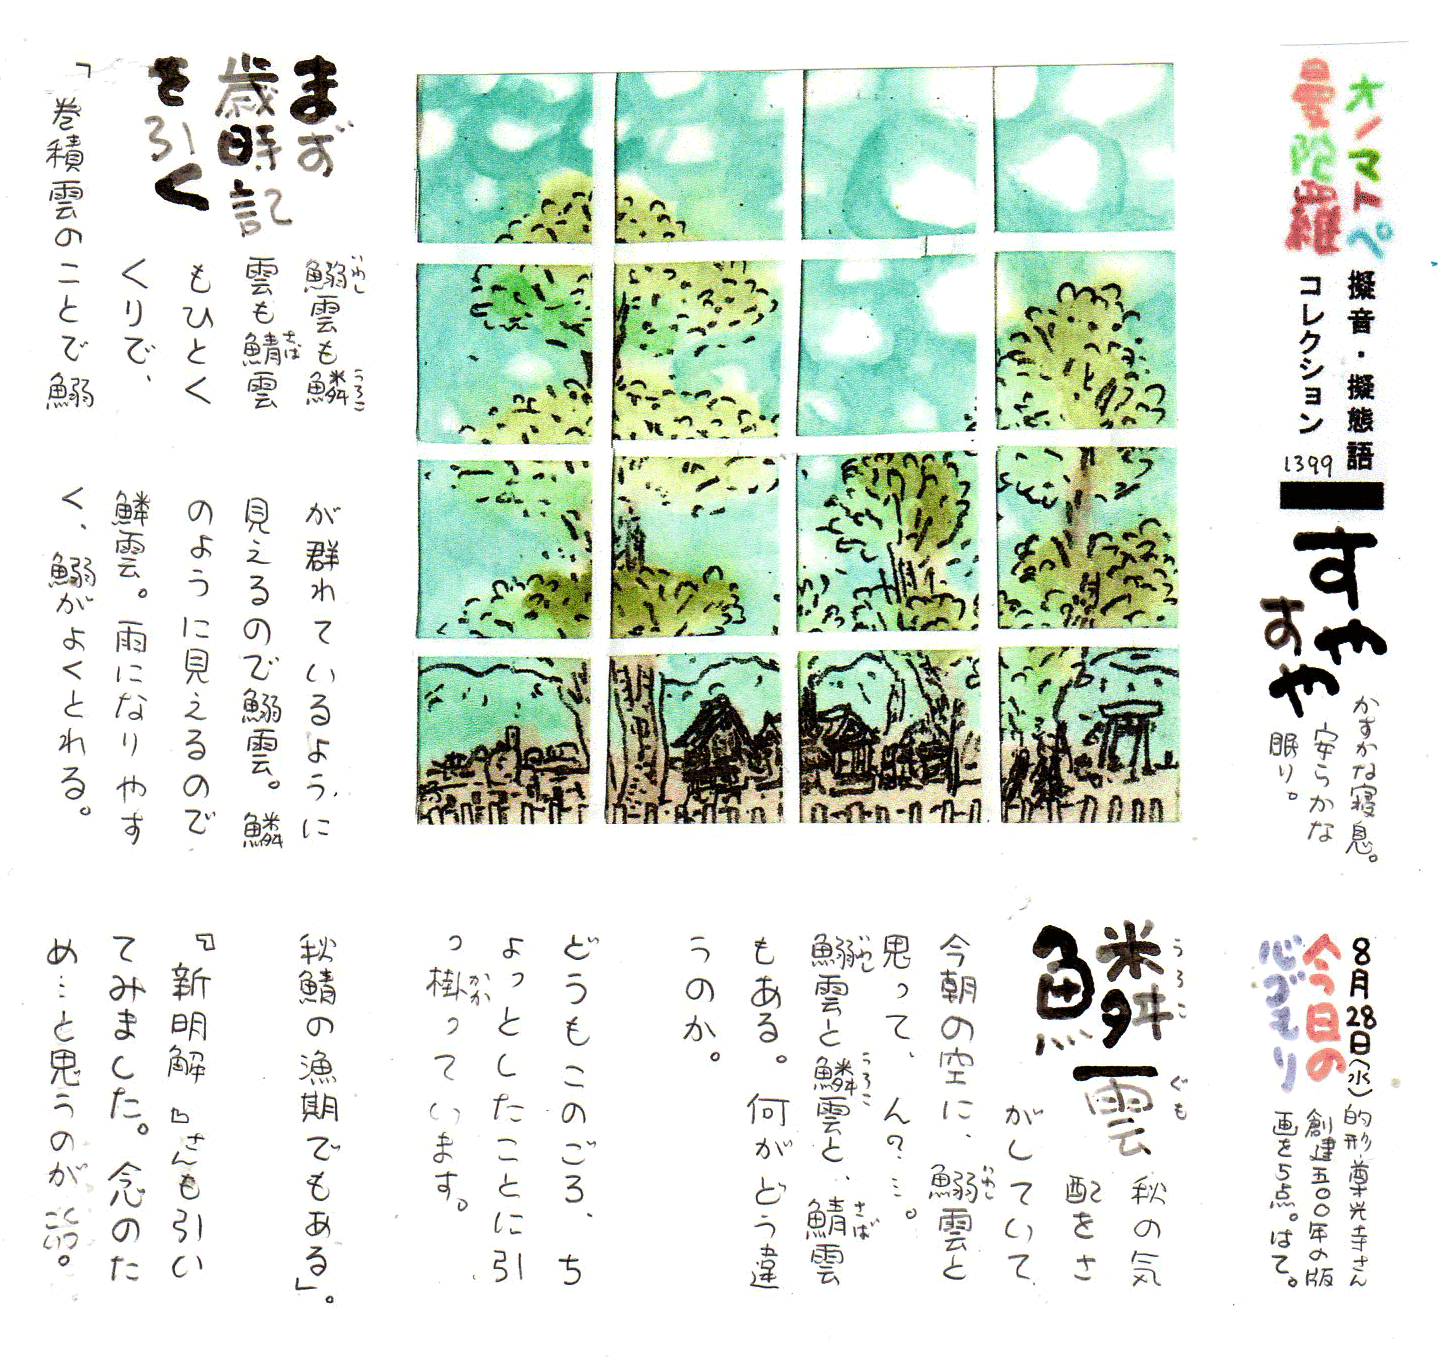 オノマトペ
曼陀羅
擬音・擬態語
コレクション
1399
すや
すや
かすかな寝息。
安らかな
眠り。
8月28日(水)
今日の
心づもり
的形・尊光寺さん
創建五〇〇年の版
画を5点。はて。
鱗雲
うろこ ぐも
秋の気
配をさ
がしていて
今朝の空に、鰯雲と
いわし
思って、ん?…。
鰯雲と鱗雲と、鯖雲
いわし うろこ さば
もある。何がどう違
うのか。
どうもこのごろ、ち
ょっとしたことに引
っ掛っています。
かか
まず
歳時記
を引く
鰯雲も鱗
いわし うろこ
雲も鯖雲
さば
もひとく
くりで、
「巻積雲のことで鰯
が群れているように
見えるので鰯雲。鱗
のように見えるので
鱗雲。雨になりやす
く、鰯がよくとれる。
秋鯖の漁期でもある」。
『新明解』さんも引い
てみました。念のた
め…と思うのがこいつ。